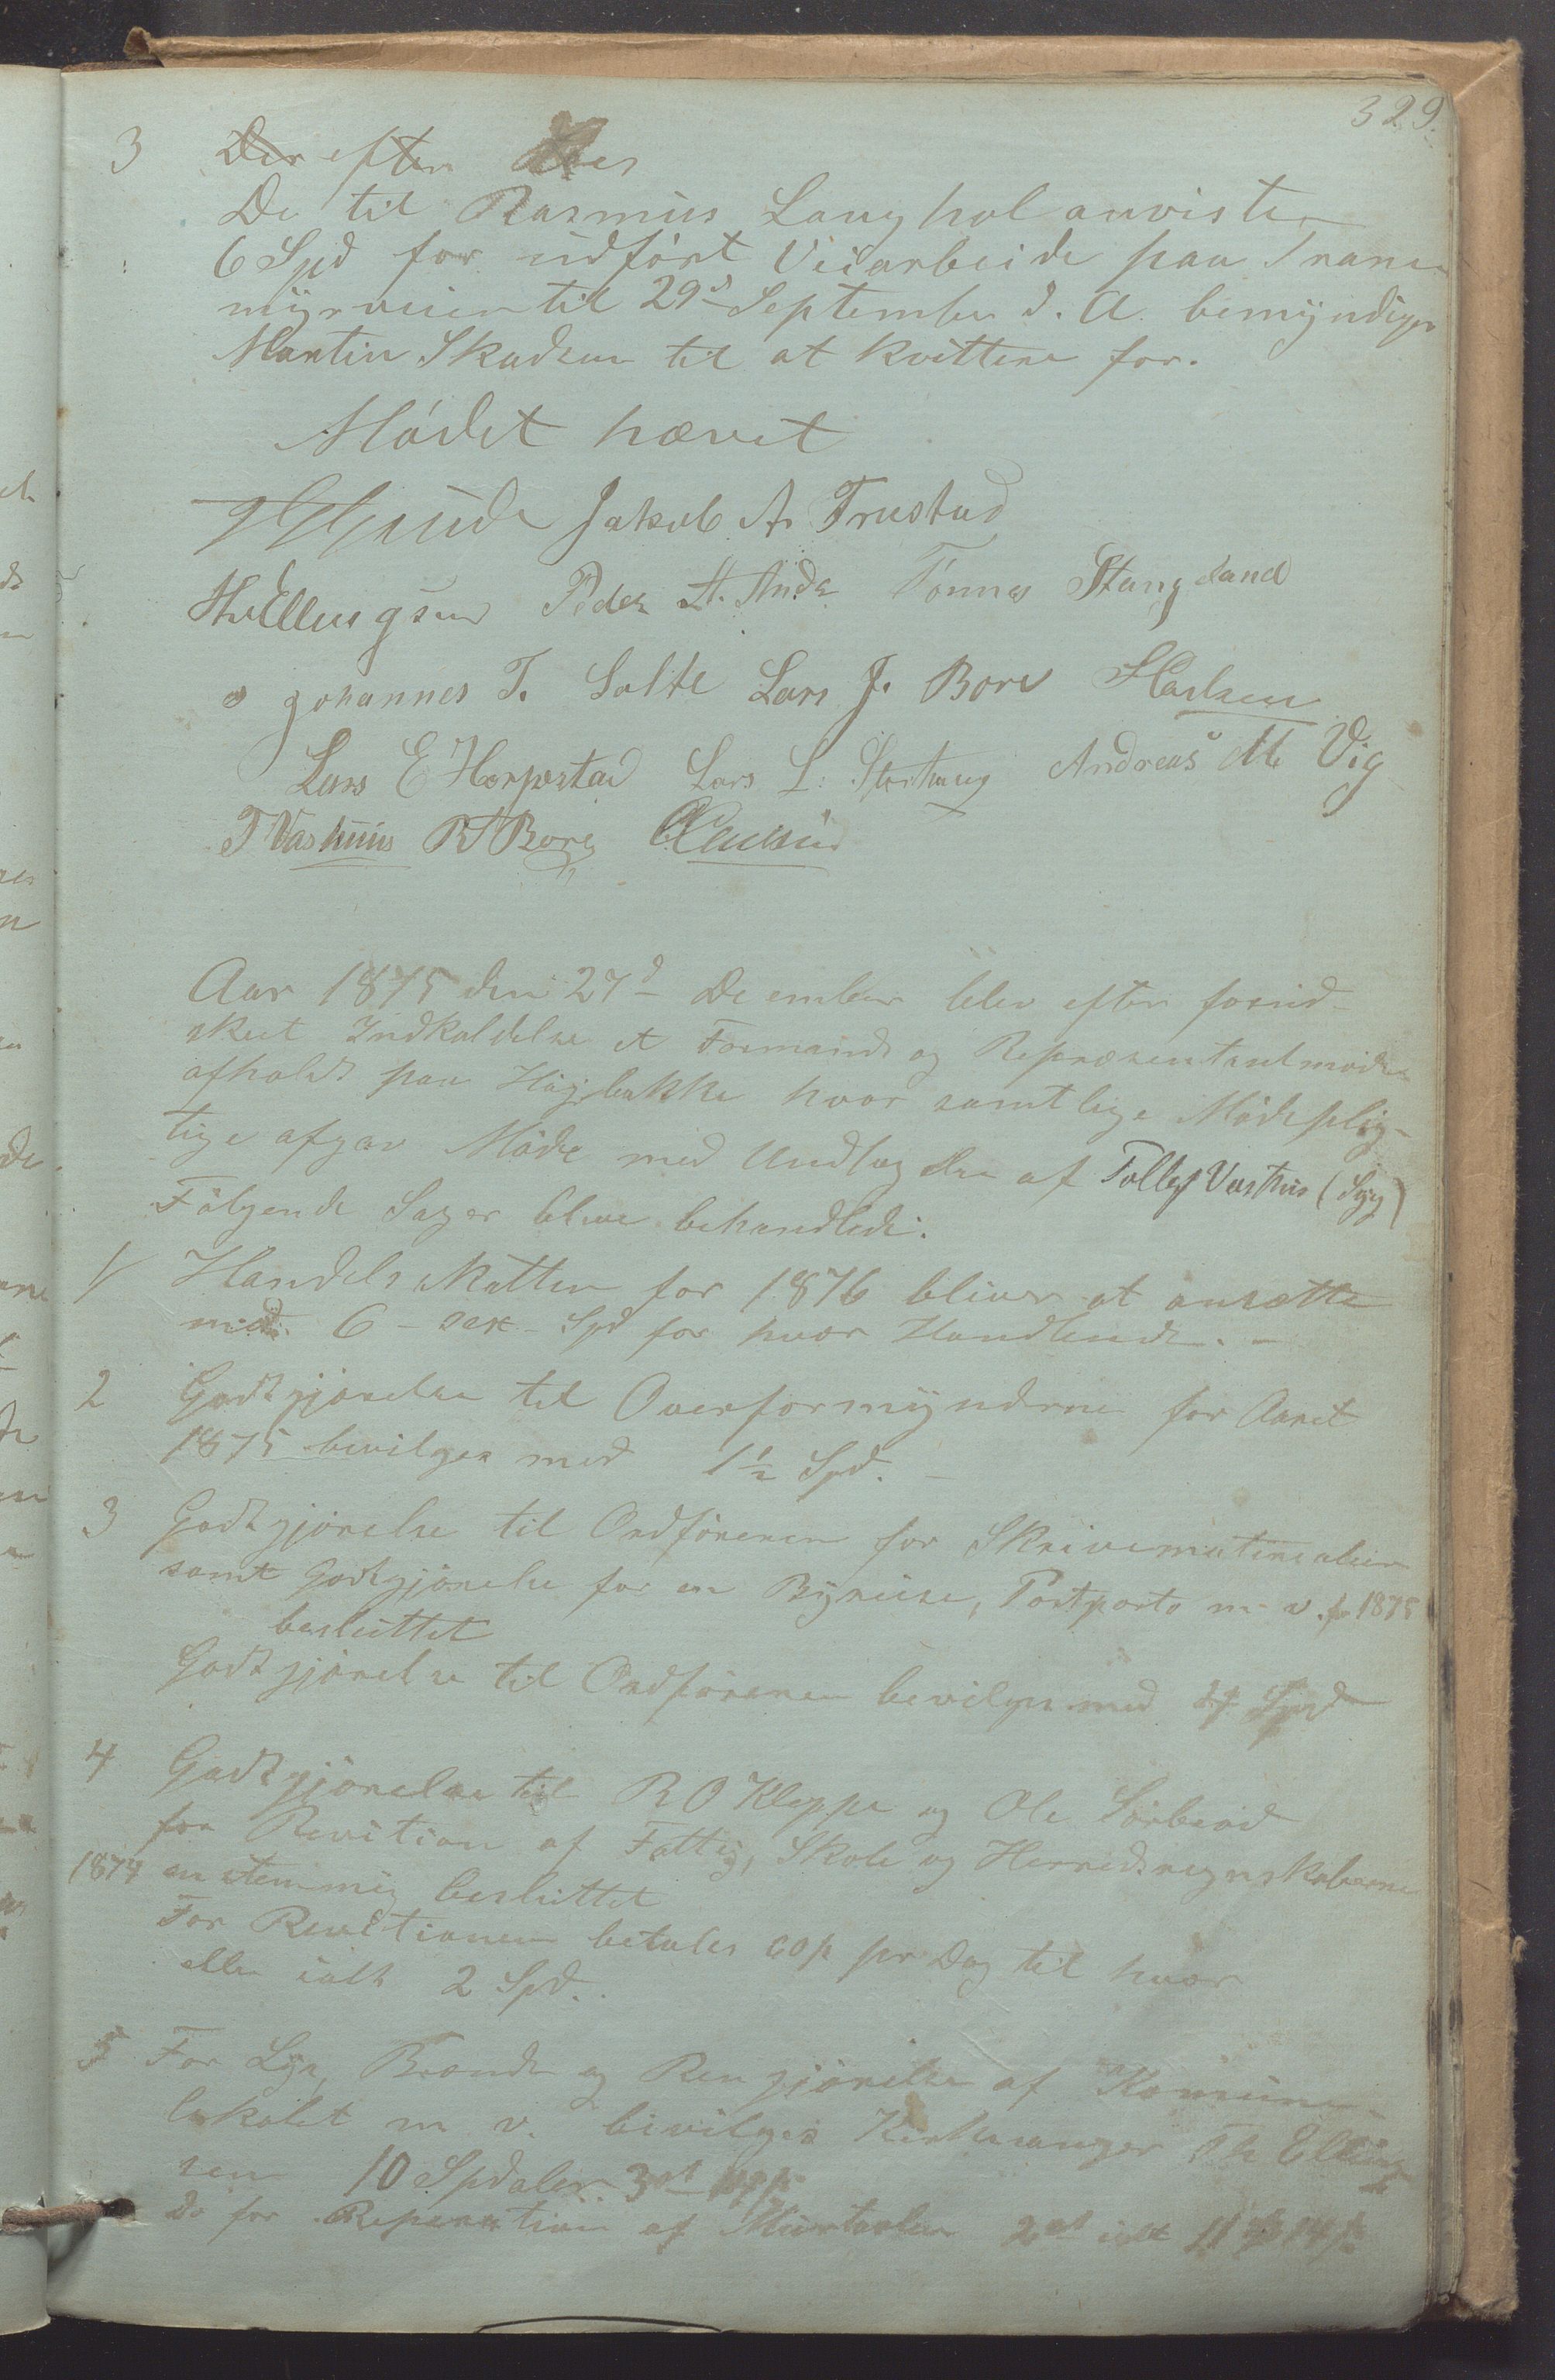 329.
3 Der efter
De til Rasmus Langhol anviste
6 Spd for udført Veiarbeide paa Trane-
myrveien til 29d September d. A. bemyndiges
Martin Skadsem til at kvittere for.
Mødet hævet
Jakob A. Trustad
Th Ellingsen Peder A. Anda Tønnes Stangeland
Johannes T. Salte Lars J. Bore
Lars E Horpestad Lars L. Storhaug Andreas M. Vig
T Vashuus R T Bore
Aar 1875 den 27d December blev efter forud-
skeet Indkaldelse et Formands og Repræsentantmøde
afholdt paa Høgebakke hvor samtlige Mødeplig-
tige afgav Møde med Undtagelse af Tollef Vashus (Syg)
Følgende Sager bleve behandlede.
1/ Handelsskatten for 1876 bliver at ansætte
med 6 - sex - Spd for hver Handlende. -
2 Godtgjørelse til Overformynderne for Aaret
1875 bevilges med 1½ Spd. -
3 Godtgjørelse til Ordføreren for Skrivematerialier
samt Godtgjørelse for en Byreise, Postporto m. v. for 1875
besluttet
Godtgjørelse til Ordføreren bevilges med Spd
4 Godtgjørelse til R O Kleppe og Ole Sørbrød
for Revition af Fattig, Skole og Herredsregnskaberne
1874 enstemmig besluttet
For Revitionen betales 60 s pr Dag til hver
eller ialt 2 Spd.
5 For Lys, Brænde og Rengjørelse af Komune-
lokalet m. v. bevilges Kirkesanger Th Elling-
sen 10 Spdaler. 3 ort 14 s
Do for Reparation af 2 ort ialt 11 Sp 14 s